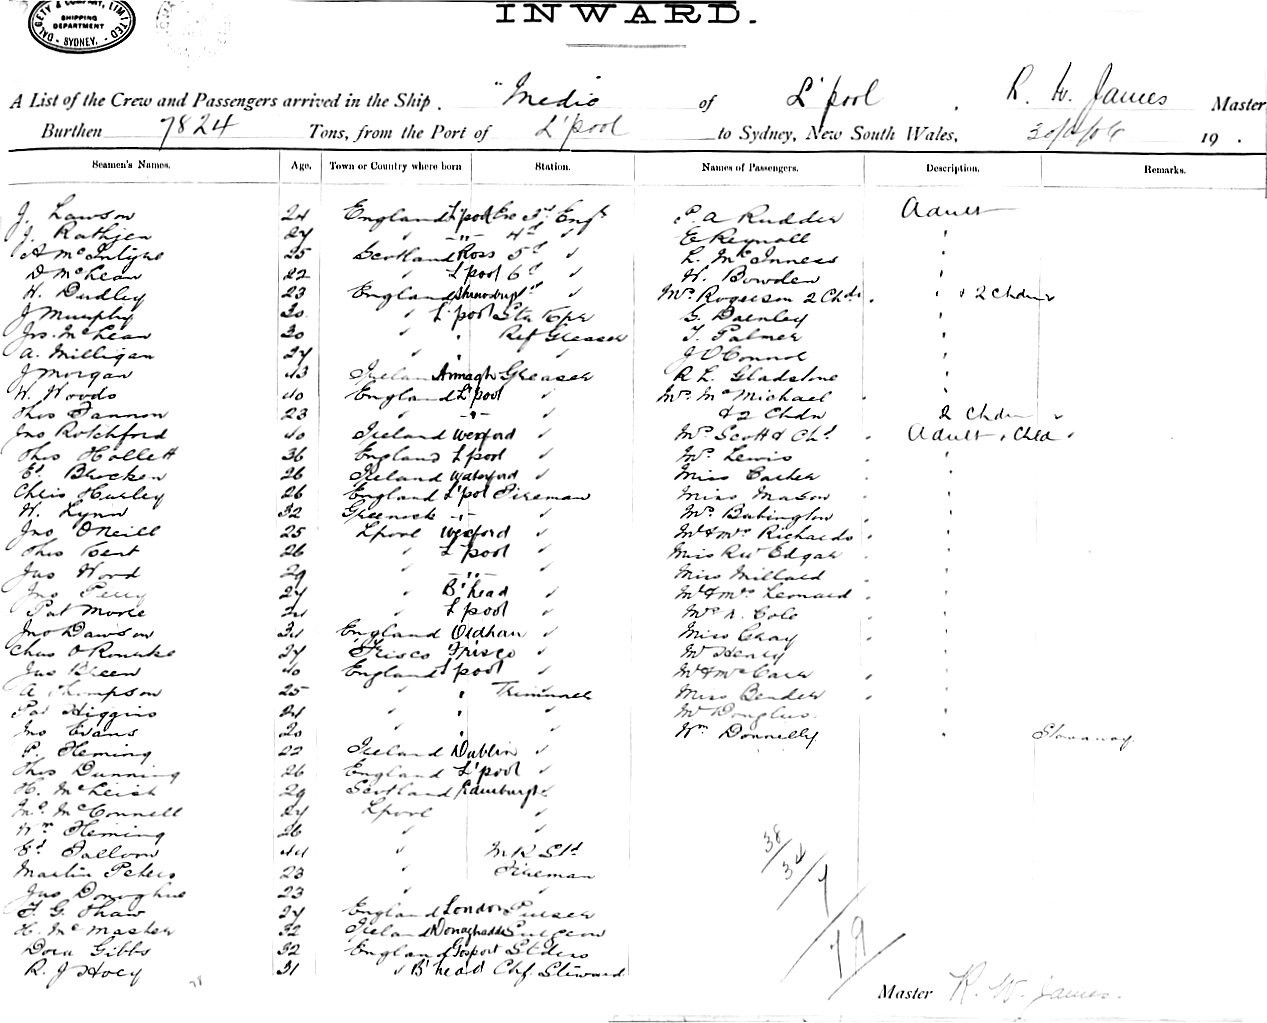 DALGETY & COMPANY, LIMITED
SHIPPING
DEPARTMENT
SYDNEY.
INWARD.
A List of the Crew and Passengers arrived in the Ship "Medic of L'pool, R. W. James Master
Burthen 7824 Tons, from the Port of L'pool to Sydney, New South Wales, 19 .
Seamen's Names. Age. Town or Country where born Station. Names of Passengers. Description. Remarks.
J. Lawson 24 England L'pool 3rd Engr P. A Rudder Adult
J. Rathjen 27 " " 4th " E Reynall "
A McIntyre 25 Scotland Ross 5th " L. McInness "
D McLean 22 " L'pool 6th " H. Bowden "
H. Dudley 23 England " Mrs Rogerson 2 Chdn " & 2 Chdn
J Murphy 30 " L'pool G. Daenley "
Jno. McLean 30 " " Ref Greaser T. Palmer "
A. Milligan 27 " " " J O'Connor "
J Morgan 43 Ireland Armagh Greaser R L. Gladstone "
W. Woods 40 England L'pool " Mrs McMichael
Thos Fannon 23 " " " & 2 Chdn 2 Chdn
Jno Rotchford 40 Ireland Wexford " Mrs Scott & Chd Adult & Chld
Thos Hollett 36 England L'pool " Mrs Lewis "
Ed Bracken 26 Ireland Waterford " Miss "
Chris Hurley 26 England L'pol Fireman Miss Mason "
W. Lynn 32 Greenock " " Mrs Babington "
Jno O'Neill 25 Lpool Wexford " Mr & Mrs Richards "
Thos Kent 26 " L'pool " Miss Edgar "
Jas Wood 29 " " " Miss Millard "
Jno Perry 27 " B'head " Mr & Mrs Leonard "
Pat Moore 24 " L'pool " Mrs A. Cole "
Jno Dawson 34 England Oldham " Miss Gray "
Chas O'Rourke 27 Frisco Frisco " Mr Henry "
Jas Breen 40 England L'pool " Mr & Mrs Carr "
A Thompson 25 " " Trimmer Miss Bender "
Pat Higgins 24 " " " Mr Douglas "
Jno Evans 20 " " " Wm Donnelly " Stowaway
P. Fleming 22 Ireland Dublin "
Thos Dunning 26 England L'pool "
H. McLeish 29 Scotland Edinburgh "
Ms. McConnell 27 Lpool "
Wm Fleming 26 " "
Ed Fallow 44 "
Martin Peters 23 " Fireman
Jas Donoghue 23 " "
T. G. Shaw 27 England London Purser
H. McMaster 32 Ireland Donaghadee Surgeon
Dora Gibbs 32 England Gosport Stdess
R. J Hoey 31 " B'head Chf Steward
38/34/7/79
Master R. W. James.